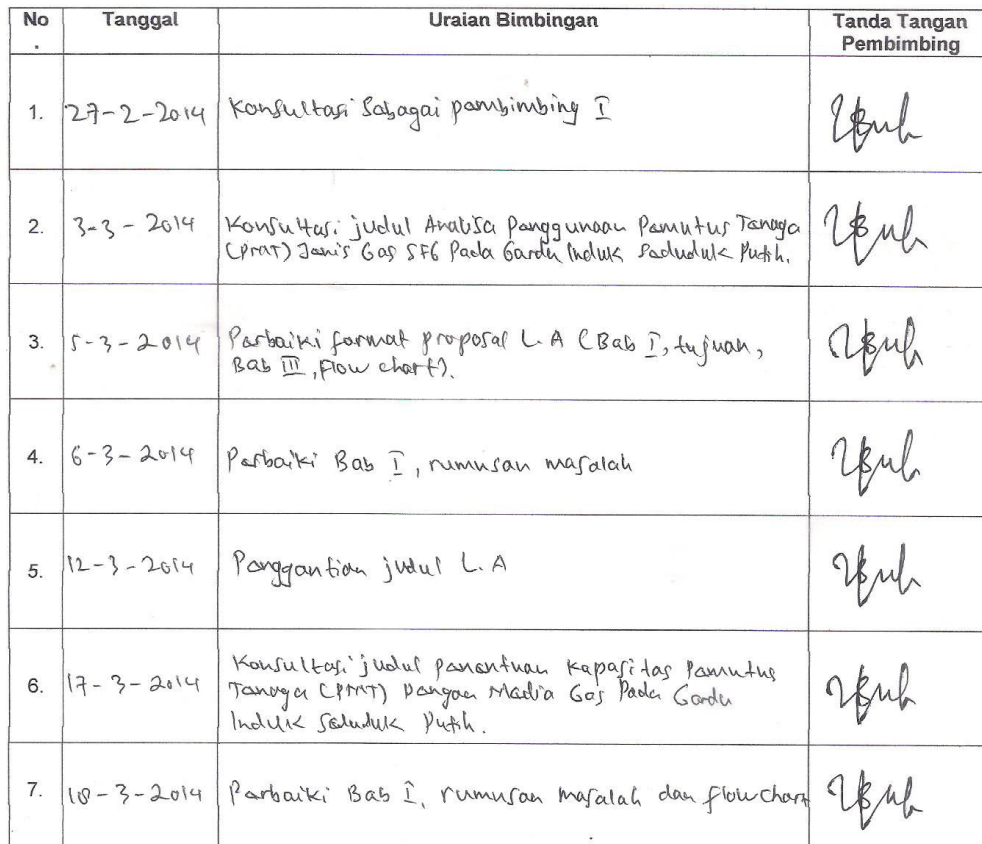 No. Tanggal Uraian Bimbingan Tanda Tangan
Pembimbing
1. 27-2-2014 Konsultasi Sebagai pembimbing I
2. 3-3-2014 Konsultasi judul Analisa Penggunaan Pemutus Tenaga
(PMT) Jenis Gas SF6 Pada Gardu Induk Seduduk Putih.
3. 5-3-2014 Perbaiki format proposal L.A (Bab I, tujuan,
Bab III, Flow chart).
4. 6-3-2014 Perbaiki Bab I, rumusan masalah
5. 12-3-2014 Penggantian judul L.A
6. 17-3-2014 Konsultasi judul Penentuan Kapasitas Pemutus
Tenaga (PMT) Dengan Media Gas Pada Gardu
Induk Seduduk Putih.
7. 18-3-2014 Perbaiki Bab I, rumusan masalah dan flowchart